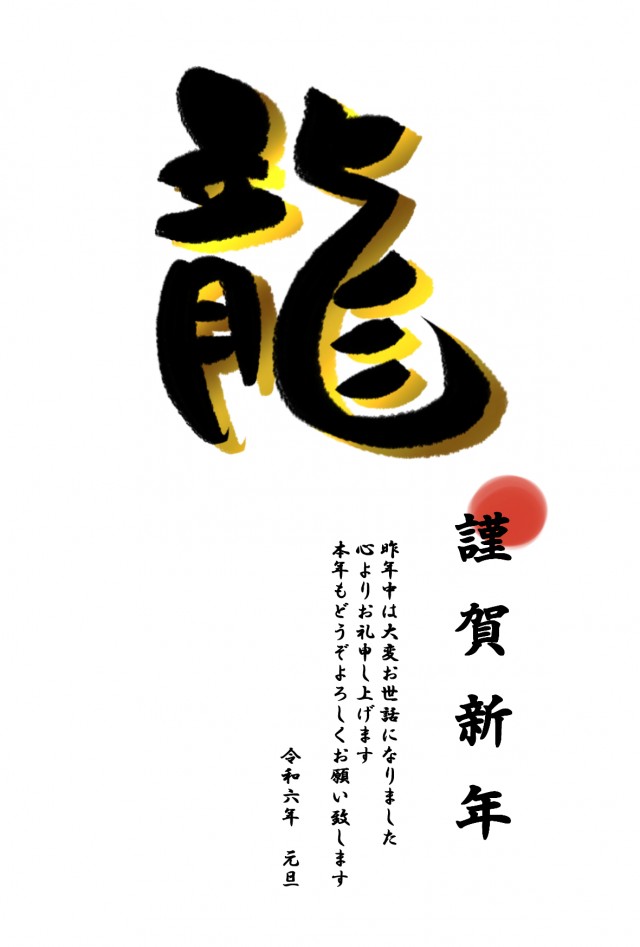 龍
謹賀新年
昨年中は大変お世話になりました
心よりお礼申し上げます
本年もどうぞよろしくお願い致します
令和六年 元旦